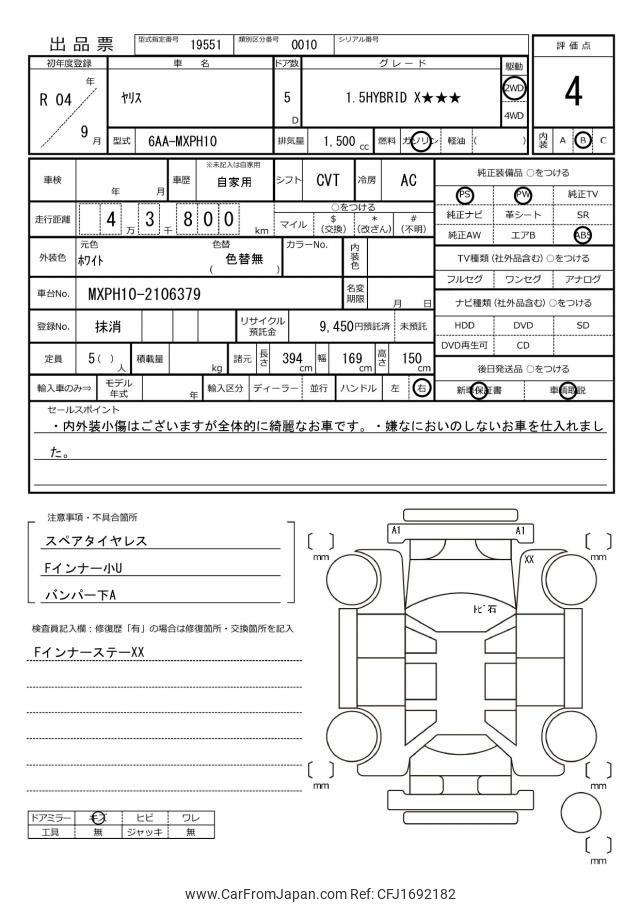 出品票 型式指定番号 19551 類別区分番号 0010 シリアル番号
評価点
4
初年度登録 車名 ドア数 グレード 駆動
R 04 年 9 月 ﾔﾘｽ 5 D 1.5HYBRID X★★★ 2WD
4WD
型式 6AA-MXPH10 排気量 1,500 cc 燃料 ガソリン 軽油 ( )
内装 A B C
車検 年 月 車歴 ※未記入は自家用 自家用 シフト CVT 冷房 AC
走行距離 4 万 3 千 8 0 0 km
○をつける
マイル $(交換) *(改ざん) #(不明)
外装色 元色 ﾎﾜｲﾄ 色替 ( 色替無 ) カラーNo. 内装色
車台No. MXPH10-2106379 名変期限 月 日
登録No. 抹消 リサイクル預託金 9,450円預託済 未預託
定員 5 ( ) 人 積載量 kg 諸元 長さ 394 cm 幅 169 cm 高さ 150 cm
輸入車のみ⇒ モデル年式 年 輸入区分 ディーラー 並行 ハンドル 左 右
純正装備品 ○をつける
PS PW 純正TV
純正ナビ 革シート SR
純正AW エアB ABS
TV種類(社外品含む) ○をつける
フルセグ ワンセグ アナログ
ナビ種類(社外品含む) ○をつける
HDD DVD SD
DVD再生可 CD
後日発送品 ○をつける
新車保証書 車輌取説
セールスポイント
・内外装小傷はございますが全体的に綺麗なお車です。・嫌なにおいのしないお車を仕入れまし
た。
注意事項・不具合箇所
スペアタイヤレス
Fインナー小U
バンパー下A
検査員記入欄：修復歴「有」の場合は修復箇所・交換箇所を記入
FインナーステーXX
A1 A1
XX
ﾄﾋﾞ石
mm mm
mm mm
mm
ドアミラー キズ ヒビ ワレ
工具 無 ジャッキ 無
www.CarFromJapan.com Ref: CFJ1692182